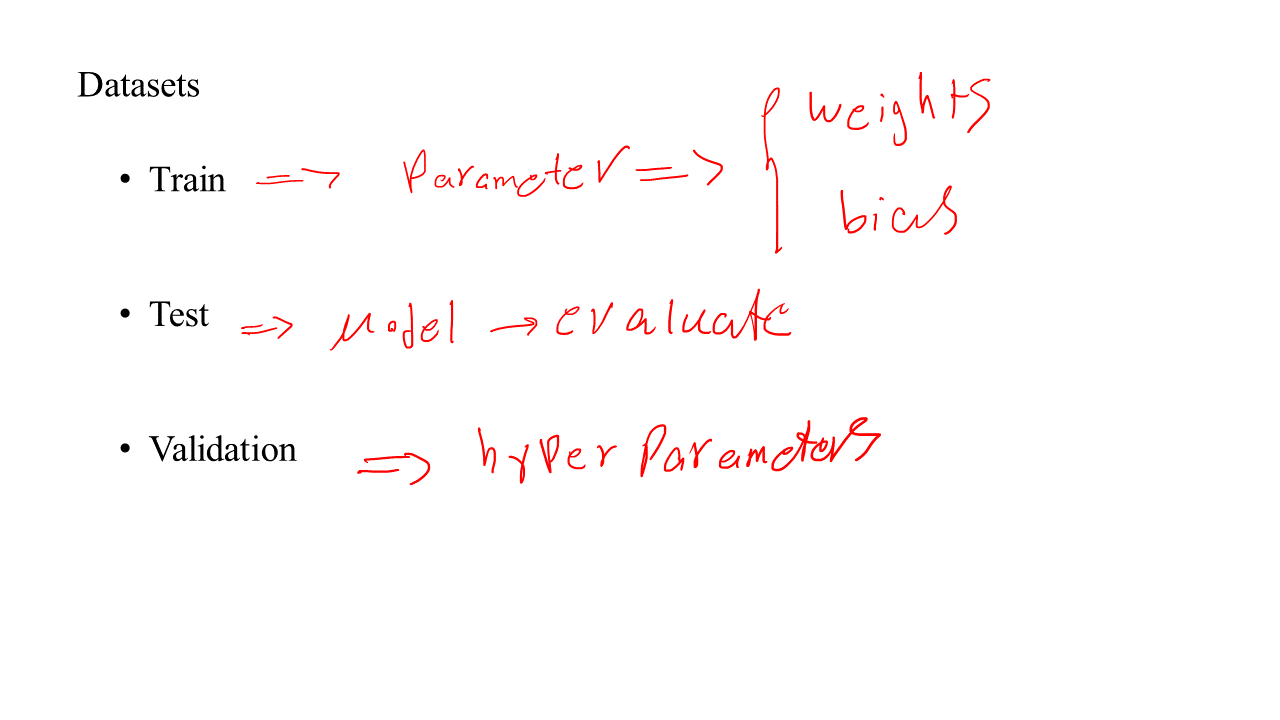 Datasets
• Train => Parameter => { weights
bias
• Test => Model → evaluate
• Validation => hyper Parameters